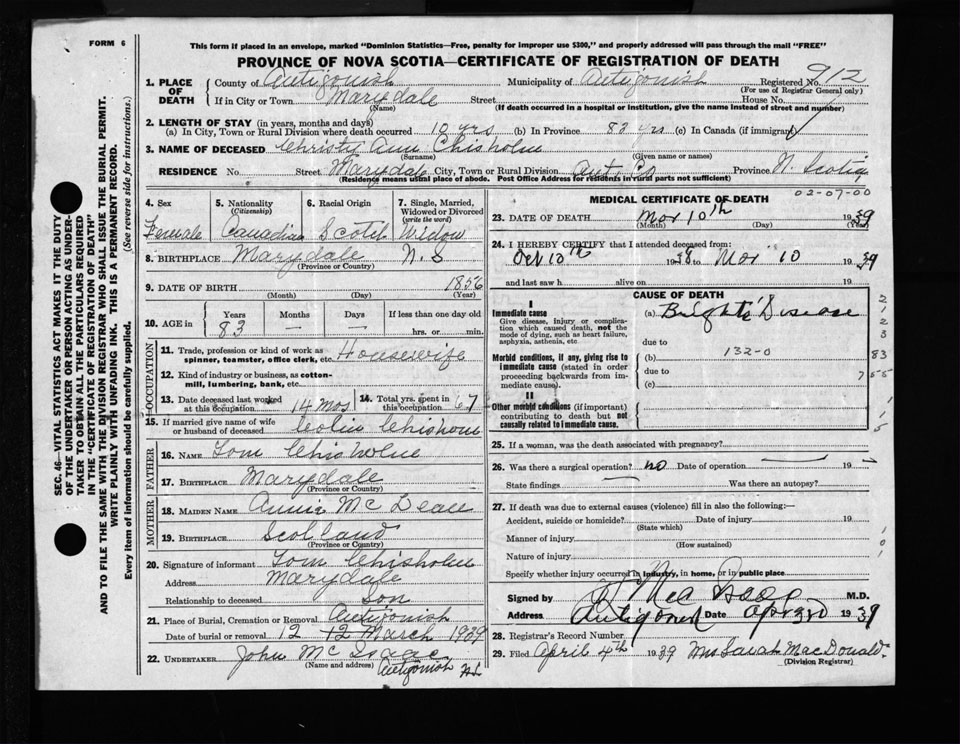 FORM 6
This form if placed in an envelope, marked "Dominion Statistics—Free, penalty for improper use $300," and properly addressed will pass through the mail "FREE"
PROVINCE OF NOVA SCOTIA—CERTIFICATE OF REGISTRATION OF DEATH
1. PLACE OF DEATH County of Antigonish Municipality of Antigonish Registered No. 912
(For use of Registrar General only)
If in City or Town Marydale Street House No.
(Name) (If death occurred in a hospital or institution, give the name instead of street and number)
2. LENGTH OF STAY (in years, months and days)
(a) In City, Town or Rural Division where death occurred 10 yrs (b) In Province 83 yrs (c) In Canada (if immigrant)
3. NAME OF DECEASED Christy Ann Chisholm
(Surname) (Given name or names)
RESIDENCE No. Street. Marydale City, Town or Rural Division Ant. Co Province N. Scotia
(Residence means usual place of abode. Post Office Address for residents in rural parts not sufficient)
4. Sex 5. Nationality (Citizenship) 6. Racial Origin 7. Single, Married, Widowed or Divorced (write the word)
Female Canadian Scotch Widow
8. BIRTHPLACE Marydale N.S
(Province or Country)
9. DATE OF BIRTH 1856
(Month) (Day) (Year)
10. AGE in Years Months Days If less than one day old
83 — — hrs. or min.
OCCUPATION
11. Trade, profession or kind of work as spinner, teamster, office clerk, etc. Housewife
12. Kind of industry or business, as cotton-mill, lumbering, bank, etc.
13. Date deceased last worked at this occupation 14 mos 14. Total yrs. spent in this occupation 67
15. If married give name of wife or husband of deceased Colin Chisholm
FATHER
16. NAME Tom Chisholm
17. BIRTHPLACE Marydale
(Province or Country)
MOTHER
18. MAIDEN NAME Annie Mc Lean
19. BIRTHPLACE Scotland
(Province or Country)
20. Signature of informant Tom Chisholm
Address Marydale
Relationship to deceased Son
21. Place of Burial, Cremation or Removal Antigonish
Date of burial or removal 12 12 March 1939
22. UNDERTAKER John Mc Isaac
(Name and address) Antigonish N.S.
02-07-00
MEDICAL CERTIFICATE OF DEATH
23. DATE OF DEATH Mar 10th 1939
(Month) (Day) (Year)
24. I HEREBY CERTIFY that I attended deceased from:
Oct 10th 1938 to Mar 10 1939
and last saw h alive on 19
CAUSE OF DEATH
I
Immediate cause (a) Bright's Disease
Give disease, injury or complication which caused death, not the mode of dying, such as heart failure, asphyxia, asthenia, etc
due to
Morbid conditions, if any, giving rise to immediate cause (stated in order proceeding backwards from immediate cause).
(b) 132-0
due to
(c)
II
Other morbid conditions (if important) contributing to death but not causally related to immediate cause.
25. If a woman, was the death associated with pregnancy?
26. Was there a surgical operation? no Date of operation 19
State findings Was there an autopsy?
27. If death was due to external causes (violence) fill in also the following:—
Accident, suicide or homicide? Date of injury 19
(State which)
Manner of injury
(How sustained)
Nature of injury
Specify whether injury occurred in industry, in home, or in public place
Signed by M.D.
Address Antigonish Date 1939
28. Registrar's Record Number
29. Filed April 4th 1939 Mrs Sarah MacDonald
(Division Registrar)
SEC. 46—VITAL STATISTICS ACT MAKES IT THE DUTY
OF THE UNDERTAKER OR PERSON ACTING AS UNDER-
TAKER TO OBTAIN ALL THE PARTICULARS REQUIRED
IN THE "CERTIFICATE OF REGISTRATION OF DEATH"
AND TO FILE THE SAME WITH THE DIVISION REGISTRAR WHO SHALL ISSUE THE BURIAL PERMIT.
WRITE PLAINLY WITH UNFADING INK. THIS IS A PERMANENT RECORD.
Every item of information should be carefully supplied. (See reverse side for instructions.)